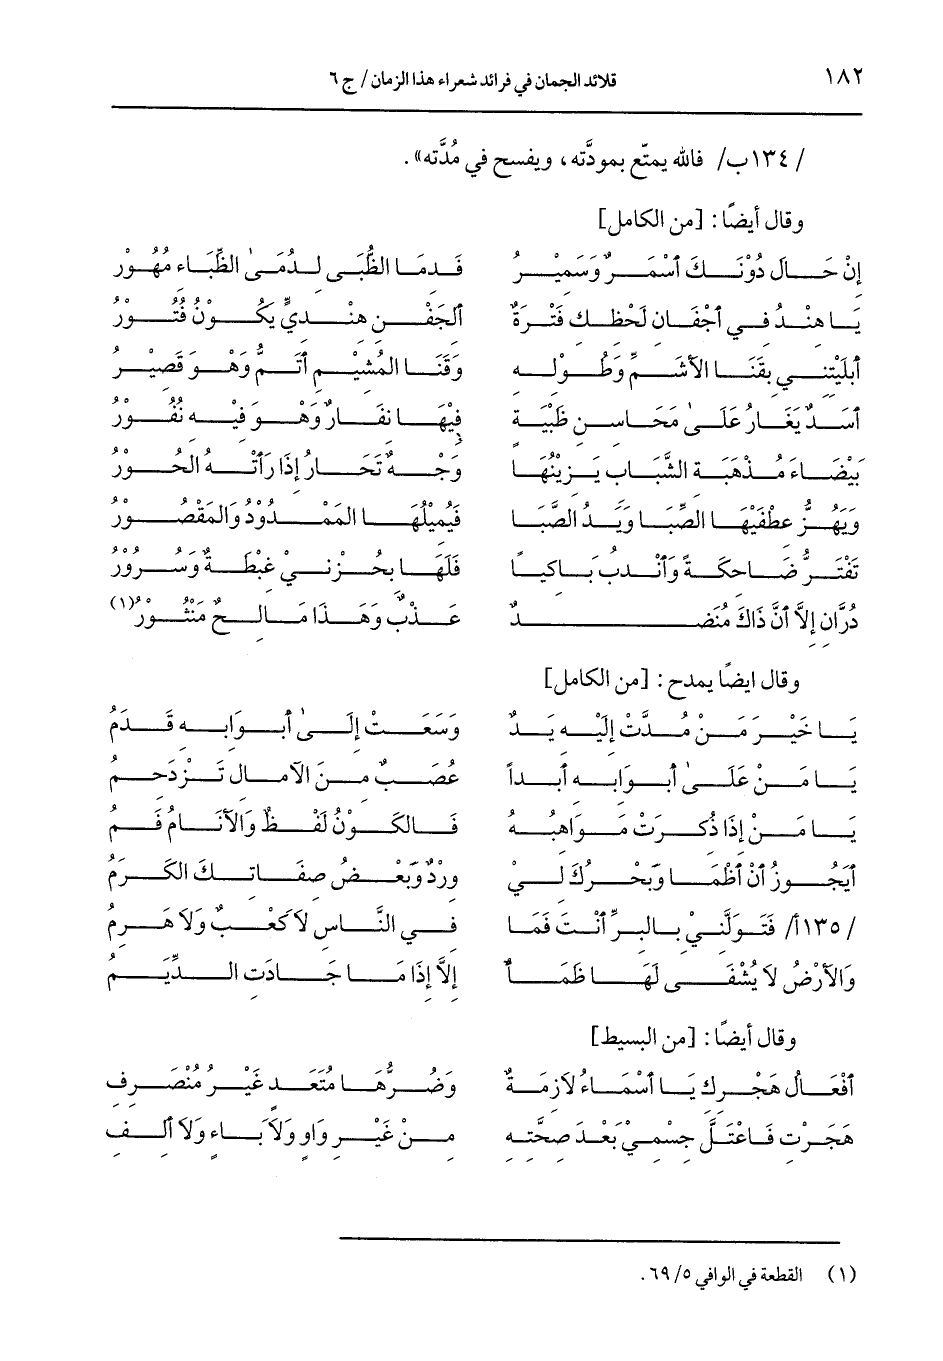 ١٨٢ قلائد الجمان في فرائد شعراء هذا الزمان / ج ٦
/ ١٣٤ب/ فالله يمتّع بمودَّته، ويفسح في مُدَّته».
وقال أيضًا: [من الكامل]
إنْ حَالَ دُوْنَكِ أسْمَرٌ وَسَمِيْرُ فَدِمَا الظُّبَى لِدُمَى الظِّبَاءِ مُهُوْرُ
يَا هِنْدُ فِي أجْفَانِ لَحْظِكِ فَتْرَةٌ ألِجَفْنِ هِنْدِيٍّ يَكُوْنُ فُتُوْرُ
أبْلَيْتِنِي بِقَنَا الأشَمِّ وَطُوْلِهِ وَقَنَا المُشِيْمِ أتَمُّ وَهْوَ قَصِيْرُ
أسَدٌ يَغَارُ عَلَى مَحَاسِنِ ظَبْيَةٍ فِيْهَا نِفَارٌ وَهْوَ فِيْهِ نُفُوْرُ
بَيْضَاءَ مُذْهَبَةِ الشَّبَابِ يَزِيْنُهَا وَجْهٌ تَحَارُ إذَا رَأتْهُ الحُوْرُ
وَيَهُزُّ عِطْفَيْهَا الصِّبَا وَيَدُ الصَّبَا فَيُمِيْلُهَا المَمْدُوْدُ وَالمَقْصُوْرُ
تَفْتَرُّ ضَاحِكَةً وَأنْدِبُ بَاكِيًا فَلَهَا بِحُزْنِيْ غِبْطَةٌ وَسُرُوْرُ
دُرَّانِ إلاَّ أنَّ ذَاكَ مُنَضَّدٌ عَذْبٌ وَهَذَا مَالِحٌ مَنْثُوْرُ(١)
وقال ايضًا يمدح: [من الكامل]
يَا خَيْرَ مَنْ مُدَّتْ إلَيْهِ يَدٌ وَسَعَتْ إلَى أبْوَابِهِ قَدَمُ
يَا مَنْ عَلَى أبْوَابِهِ أبَداً عُصَبٌ مِنَ الآمَالِ تَزْدَحِمُ
يَا مَنْ إذَا ذُكِرَتْ مَوَاهِبُهُ فَالكَوْنُ لَفْظٌ وَالأنَامُ فَمُ
أيَجُوْزُ أنْ أظْمَا وَبَحْرُكَ لِيْ وِرْدٌ وَبَعْضُ صِفَاتِكَ الكَرَمُ
/ ١٣٥أ/ فَتَوَلَّنِيْ بِالبِرِّ أنْتَ فَمَا فِي النَّاسِ لاَ كَعْبٌ وَلاَ هَرِمُ
وَالأرْضُ لاَ يُشْفَى لَهَا ظَمَأٌ إلاَّ إذَا مَا جَادَتِ الدِّيَمُ
وقال أيضًا: [من البسيط]
أفْعَالُ هَجْرِكِ يَا أسْمَاءُ لاَزِمَةٌ وَضُرُّهَا مُتَعَدٍ غَيْرُ مُنْصَرِفِ
هَجَرْتِ فَاعْتَلَّ جِسْمِيْ بَعْدَ صِحَّتِهِ مِنْ غَيْرِ وَاوٍ وَلاَ بَاءٍ وَلاَ ألِفِ
(١) القطعة في الوافي ٦٩/٥.